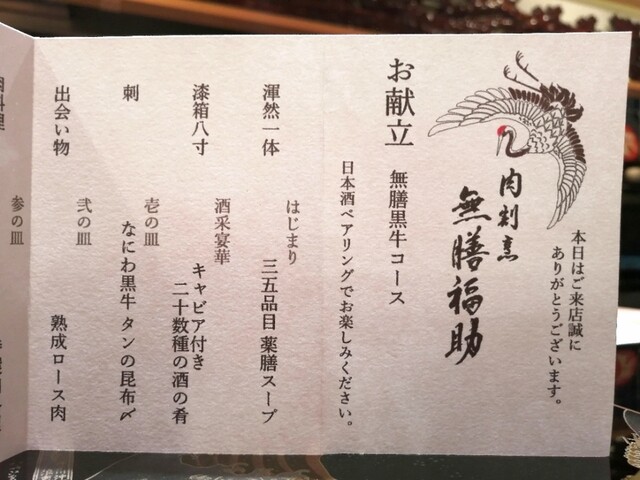 本日はご来店誠に
ありがとうございます。
肉割烹
無膳福助
お献立 無膳黒牛コース
日本酒ペアリングでお楽しみください。
はじまり
渾然一体 三五品目 薬膳スープ
酒采宴華
漆箱八寸 キャビア付き
二十数種の酒の肴
壱の皿
刺 なにわ黒牛 タンの昆布〆
弐の皿
出会い物 熟成ロース肉
参の皿
肉料理